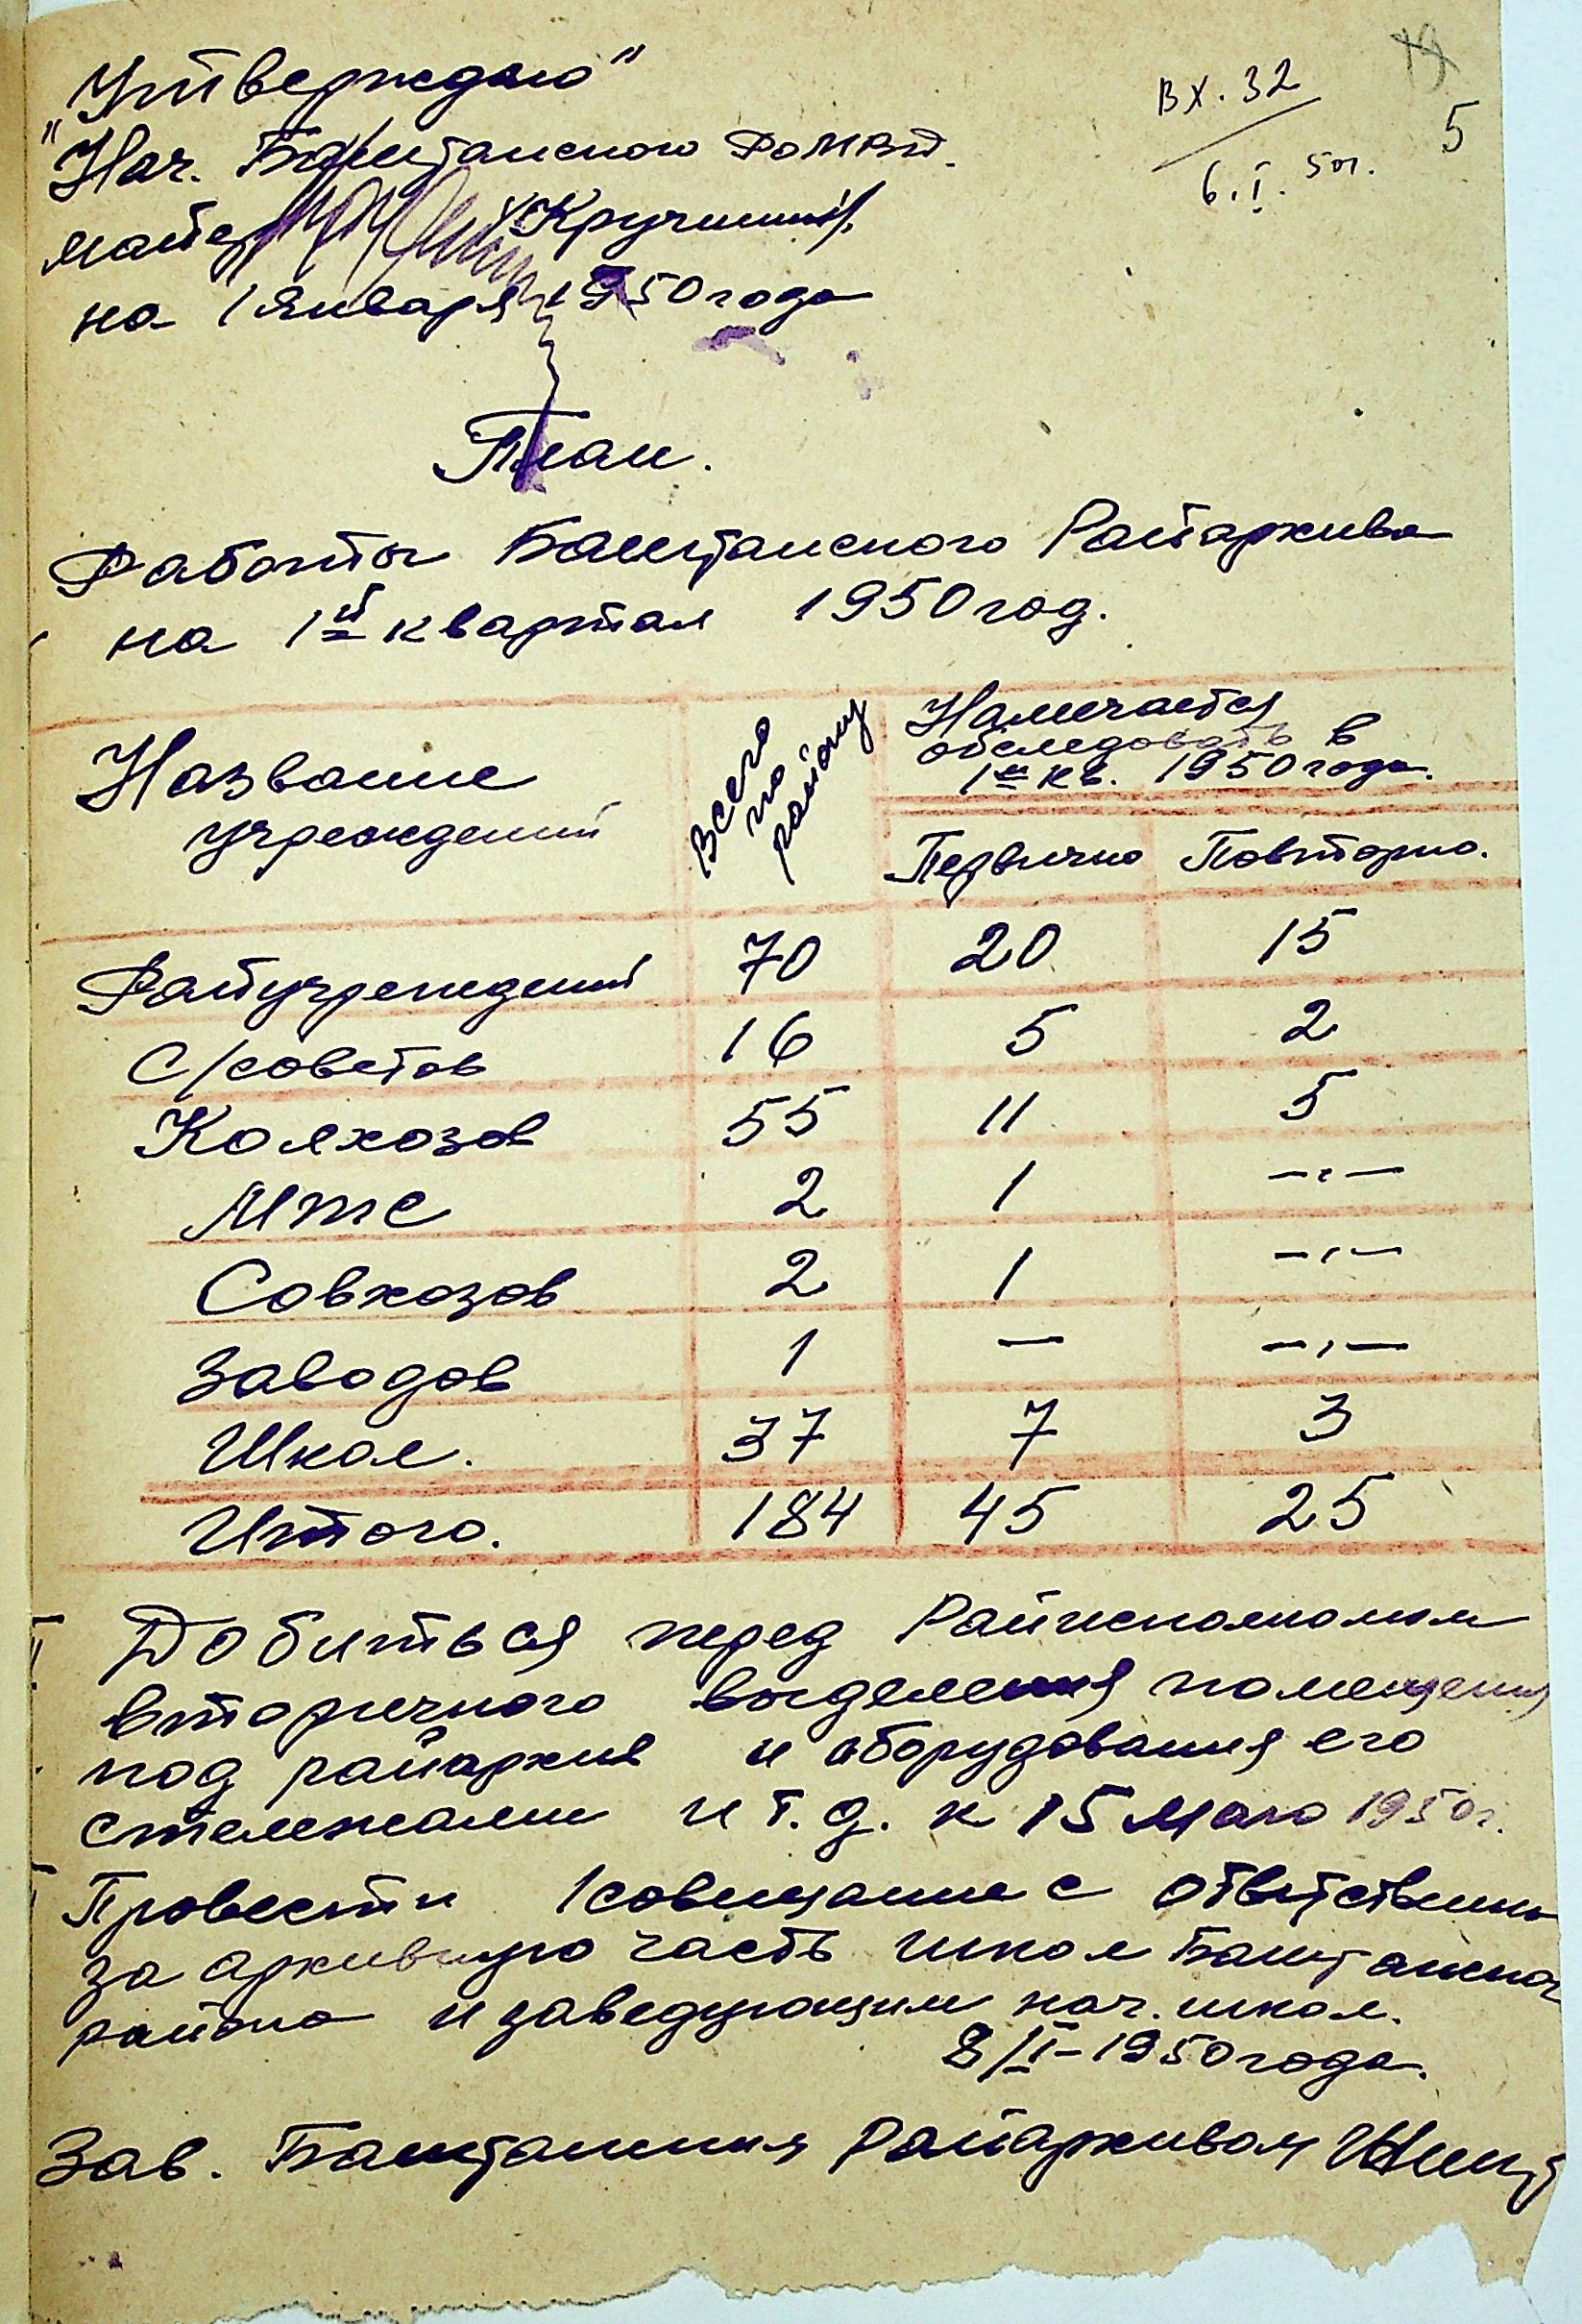 "Утверждаю"
"Нач. Баштанского РоМВД.
майор /Кручинин/.
на 1 января 1950 года
Вх. 32
6. I. 50г.
5
План.
Работы Баштанского Райархива
на 1й квартал 1950 год.
Название учреждений
Всего по району
Намечается
обследовать в
1м кв. 1950 года.
Первично Повторно.
Райучреждений 70 20 15
С/советов 16 5 2
Колхозов 55 11 5
Мтс 2 1 —"—
Совхозов 2 1 —"—
Заводов 1 — —"—
Школ. 37 7 3
Итого. 184 45 25
Добиться перед Райисполкомом
вторичного выделения помещения
под райархив и оборудования его
стележами и т. д. к 15 Маю 1950г.
Провести 1 совещание с ответствен
за архивную часть школ Баштанског
района и заведующим нач. школ.
8/II-1950 года.
Зав. Баштанским Райархивом